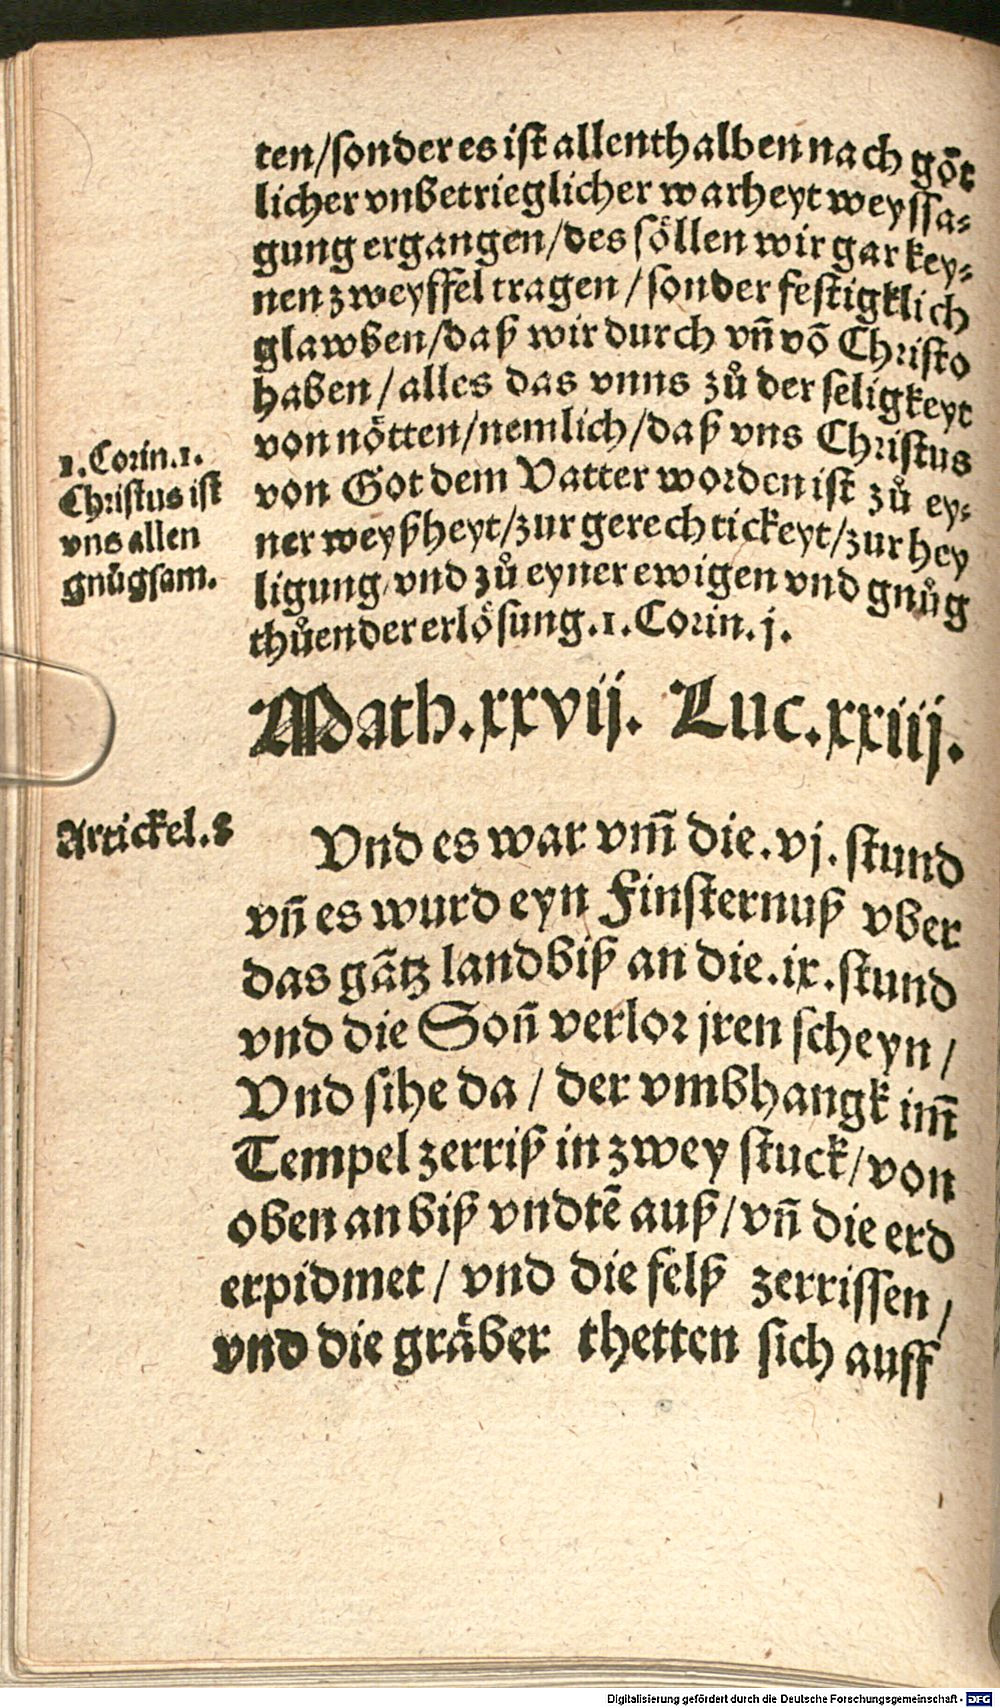 ten/sonder es ist allenthalben nach gȫt
licher vnbetrieglicher warheyt weyssa-
gung ergangen/des söllen wir gar key-
nen zweyffel tragen/sonder festigklich
glawben/daß wir durch vn̄ vō Christo
haben/alles das vnns zů der seligkeyt
von nötten/nemlich/daß vns Christus
von Got dem Vatter worden ist zů ey-
ner weyßheyt/zur gerechtickeyt/zur hey
ligung/vnd zů eyner ewigen vnd gnůg
thůender erlösung.1.Corin.j.
1.Corin.1.
Christus ist
vns allen
gnůgsam.
Math.xxvij. Luc.xxiij.
Artickel.8
Vnd es war vm̄ die.vj.stund
vn̄ es wurd eyn Finsternuß vber
das gātz land biß an die.ix.stund
vnd die Son̄ verlor jren scheyn/
Vnd sihe da/der vmbhangk im̄
Tempel zerriß in zwey stuck/von
oben an biß vndtē auß/vn̄ die erd
erpidmet/vnd die felß zerrissen/
vnd die gräber thetten sich auff
Digitalisierung gefördert durch die Deutsche Forschungsgemeinschaft - DFG